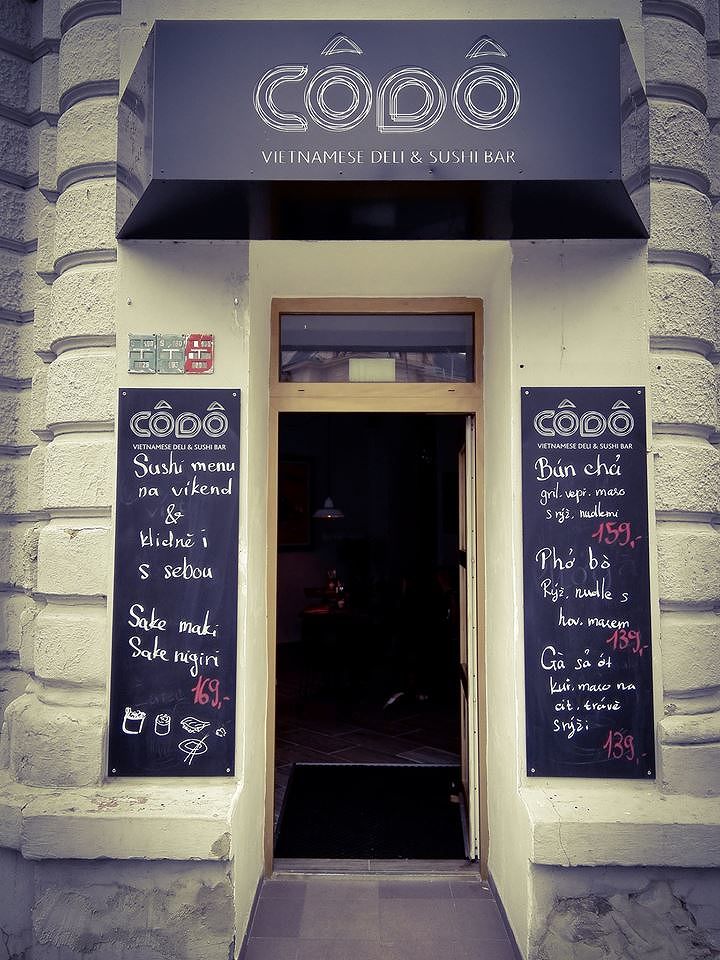 CÔDÔ
VIETNAMESE DELI & SUSHI BAR
CÔDÔ
VIETNAMESE DELI & SUSHI BAR
Sushi menu
na víkend
&
klidně i
s sebou
Sake maki
Sake nigiri
169,-
CÔDÔ
VIETNAMESE DELI & SUSHI BAR
Bún chả
gril. vepř. maso
s rýž. nudlemi
159,-
Phở bò
Rýž. nudle s
hov. masem
139,-
Gà sả ớt
kuř. maso na
cit. trávě
s rýží
139,-